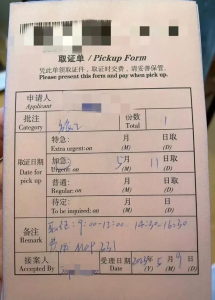 取证单 / Pickup Form
凭此单领取证件，取证时交费，请妥善保管。
Please present this form and pay when pick up.
申请人
Applicant
批注
Category
份数
Total
1
特急: 月 日取
Extra urgent on: (M) (D)
取证日期
Date for
pick up
加急: 5 月 11 日取
Urgent on: (M) (D)
普通: 月 日取
Regular: (M) (D)
待定: 月 日取
To be inquired: on (M) (D)
备注
Remark
9:00-12:00. 14:30-16:30
MOP 231
接案人
Accepted By
受理日期
(Y) 5 月 9 日
(M) (D)